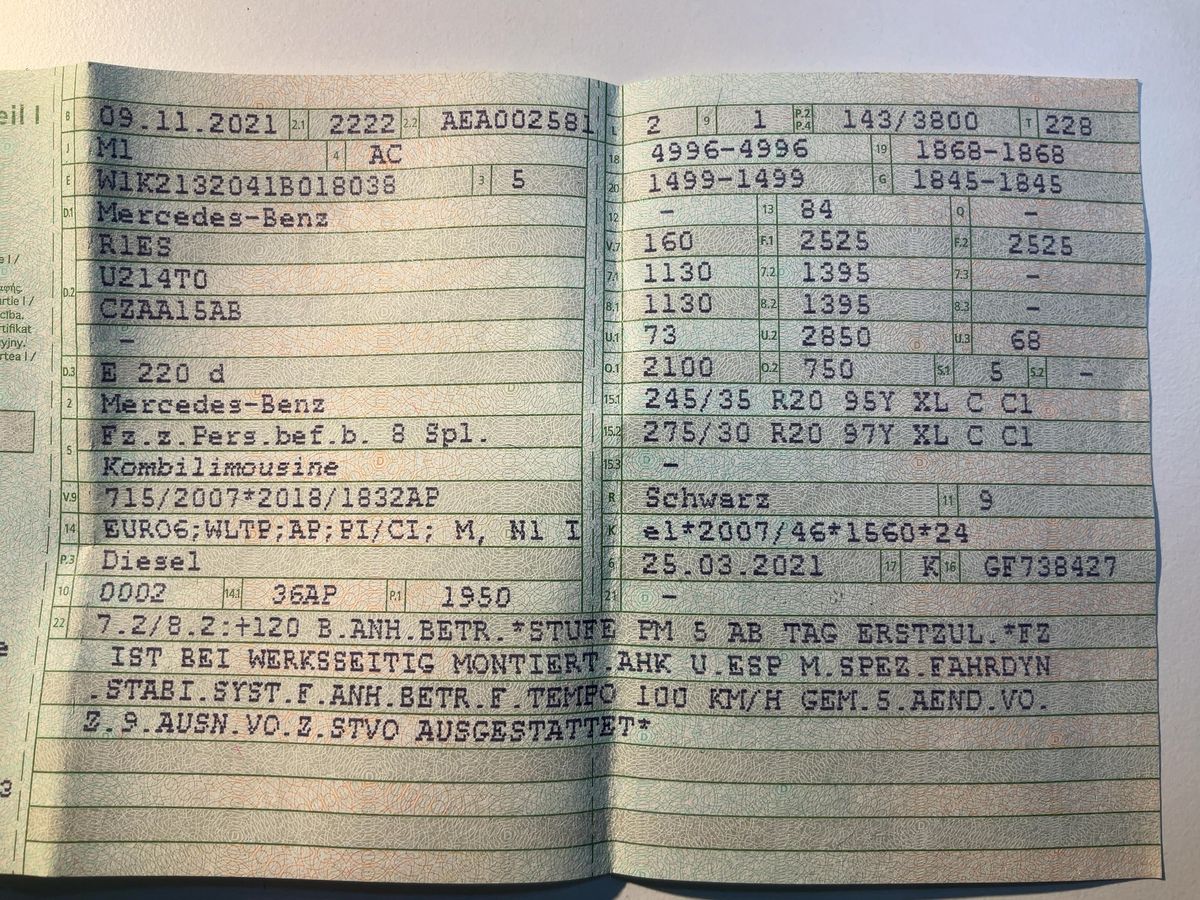 eil I
B 09.11.2021 2.1 2222 2.2 AEA002581 L 2 9 1 P.2 P.4 143/3800 T 228
J M1 4 AC 18 4996-4996 19 1868-1868
E W1K2132041B018038 3 5 20 1499-1499 G 1845-1845
D.1 Mercedes-Benz 12 - 13 84 Q -
R1ES V.7 160 F.1 2525 F.2 2525
D.2 U214T0 7.1 1130 7.2 1395 7.3 -
CZAA15AB 8.1 1130 8.2 1395 8.3 -
- U.1 73 U.2 2850 U.3 68
D.3 E 220 d O.1 2100 O.2 750 S.1 5 S.2 -
2 Mercedes-Benz 15.1 245/35 R20 95Y XL C C1
5 Fz.z.Pers.bef.b. 8 Spl. 15.2 275/30 R20 97Y XL C C1
Kombilimousine 15.3 -
V.9 715/2007*2018/1832AP R Schwarz 11 9
14 EURO6;WLTP;AP;PI/CI; M, N1 I K e1*2007/46*1560*24
P.3 Diesel 6 25.03.2021 17 K 16 GF738427
10 0002 14.1 36AP P.1 1950 21 -
22 7.2/8.2:+120 B.ANH.BETR.*STUFE PM 5 AB TAG ERSTZUL.*FZ
IST BEI WERKSSEITIG MONTIERT.AHK U.ESP M.SPEZ.FAHRDYN
.STABI.SYST.F.ANH.BETR.F.TEMPO 100 KM/H GEM.5.AEND.VO.
Z.9.AUSN.VO.Z.STVO AUSGESTATTET*